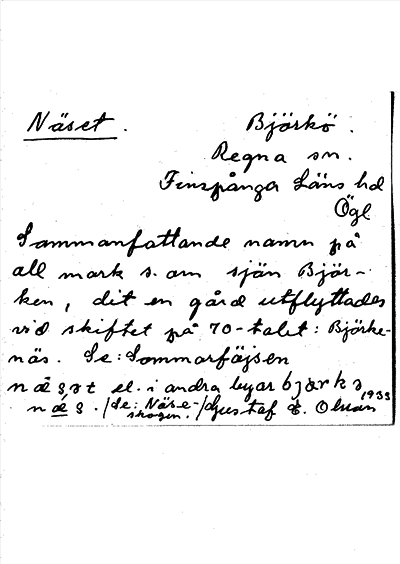 Näset. Björkö.
Regna sn.
Finspånga Läns hd
Ögl.
Sammanfattande namn på
all mark s. om sjön Björ-
ken, dit en gård utflyttades
vid skiftet på 70-talet: Björke-
näs. Se: Sommarföjsen
næ̀ṣət el. i andra byar bjærkə
næ̀ṣ. /Se: Näse-/Gustaf E. Olsson 1933
skogen.